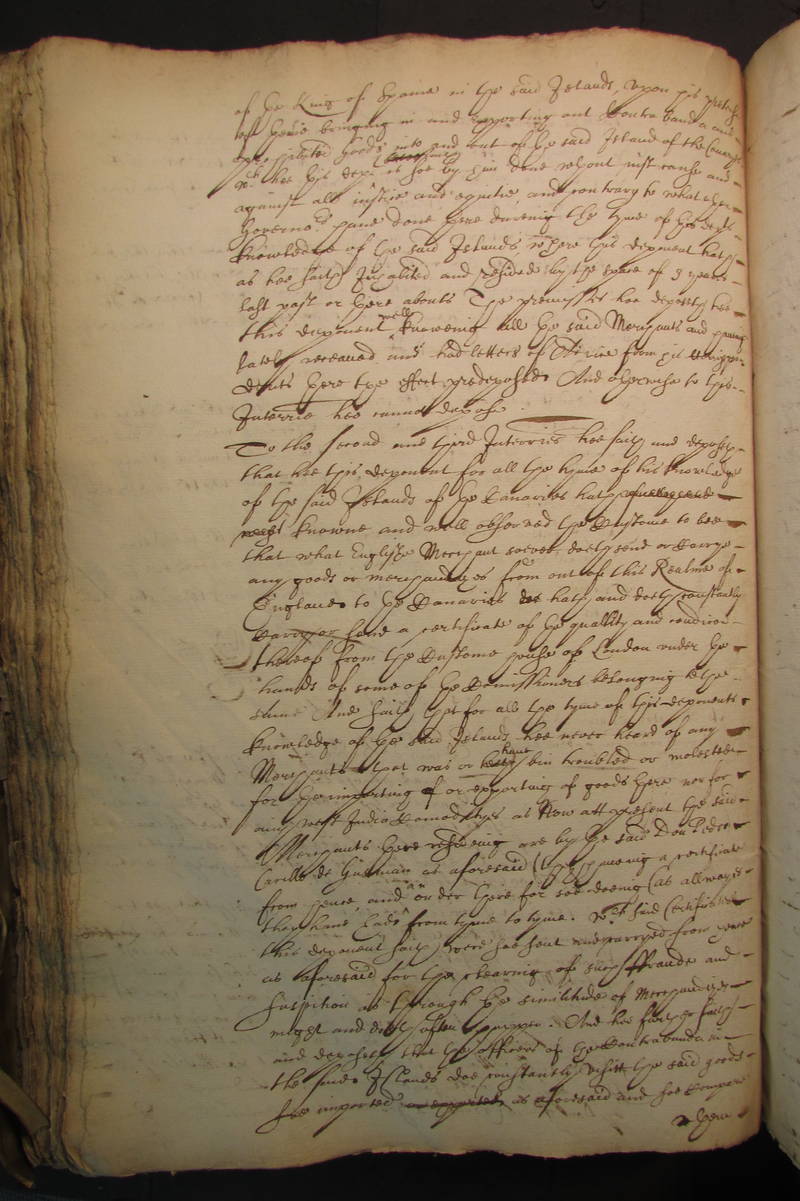 of the King of Spaine in the said Islands, upon his pretence
of theire bringing in and exporting out Contrabanda and
prohibited goods into and out of the said Island of the Canaries
wch hee this dept saith soe by him done wthout just cause and
against all justice and equitie and contrary to what other
Governors have done there dureing the tyme of his depts
knowledge of the said Islands, where this deponent hath
as hee saith Inhabited and resided by the space of 9 yeares
last past or there abouts The premisses hee deposeth hee
this deponent well knoweing all the said Merchants and haveing
lately received and had letters of Advice from his
there the effect predeposed And otherwise to this
Interrie hee cannot depose.
To the second and third Interries hee saith and deposeth
that hee this deponent for all the tyme of his knowledge
of the said Islands of the Canaries hath
knowne and well observed the Custome to bee
that what English Merchant soever doeth send or Carrye
any goods or merchandizes from out of this Realme of
England to the Canaries hath and doeth constantly
have a certificate of the quallity and condicon
thereof from the Custome house of London under the
hands of some of the Comissioners belonging to the
same And saith that for all the tyme of this deponents
knowledge of the said Islands hee never heard of any
Merchants that was or have bin troubled or molested
for the importing of or exporting of goods there nor for
any West India Comodityes as Now att present the said
Merchants there resideing are by the said Don Pedro
Carillo de Guzman as aforesaid (they haveing a certificate
from hence and an order there for soe doeing (as allwayes
they have had) from tyme to tyme. Wch said Certificates
this deponent saith were soe sent and carryed from hence
as aforesaid for the clearing of such ffraude and
suspition as through the similitude of Merchandizes
might and doeth often happen. And hee further saith
and deposeth that the officers of the Contrabanda in
the said Islands doe constantly visitt the said goods
soe imported as aforesaid and soe compare